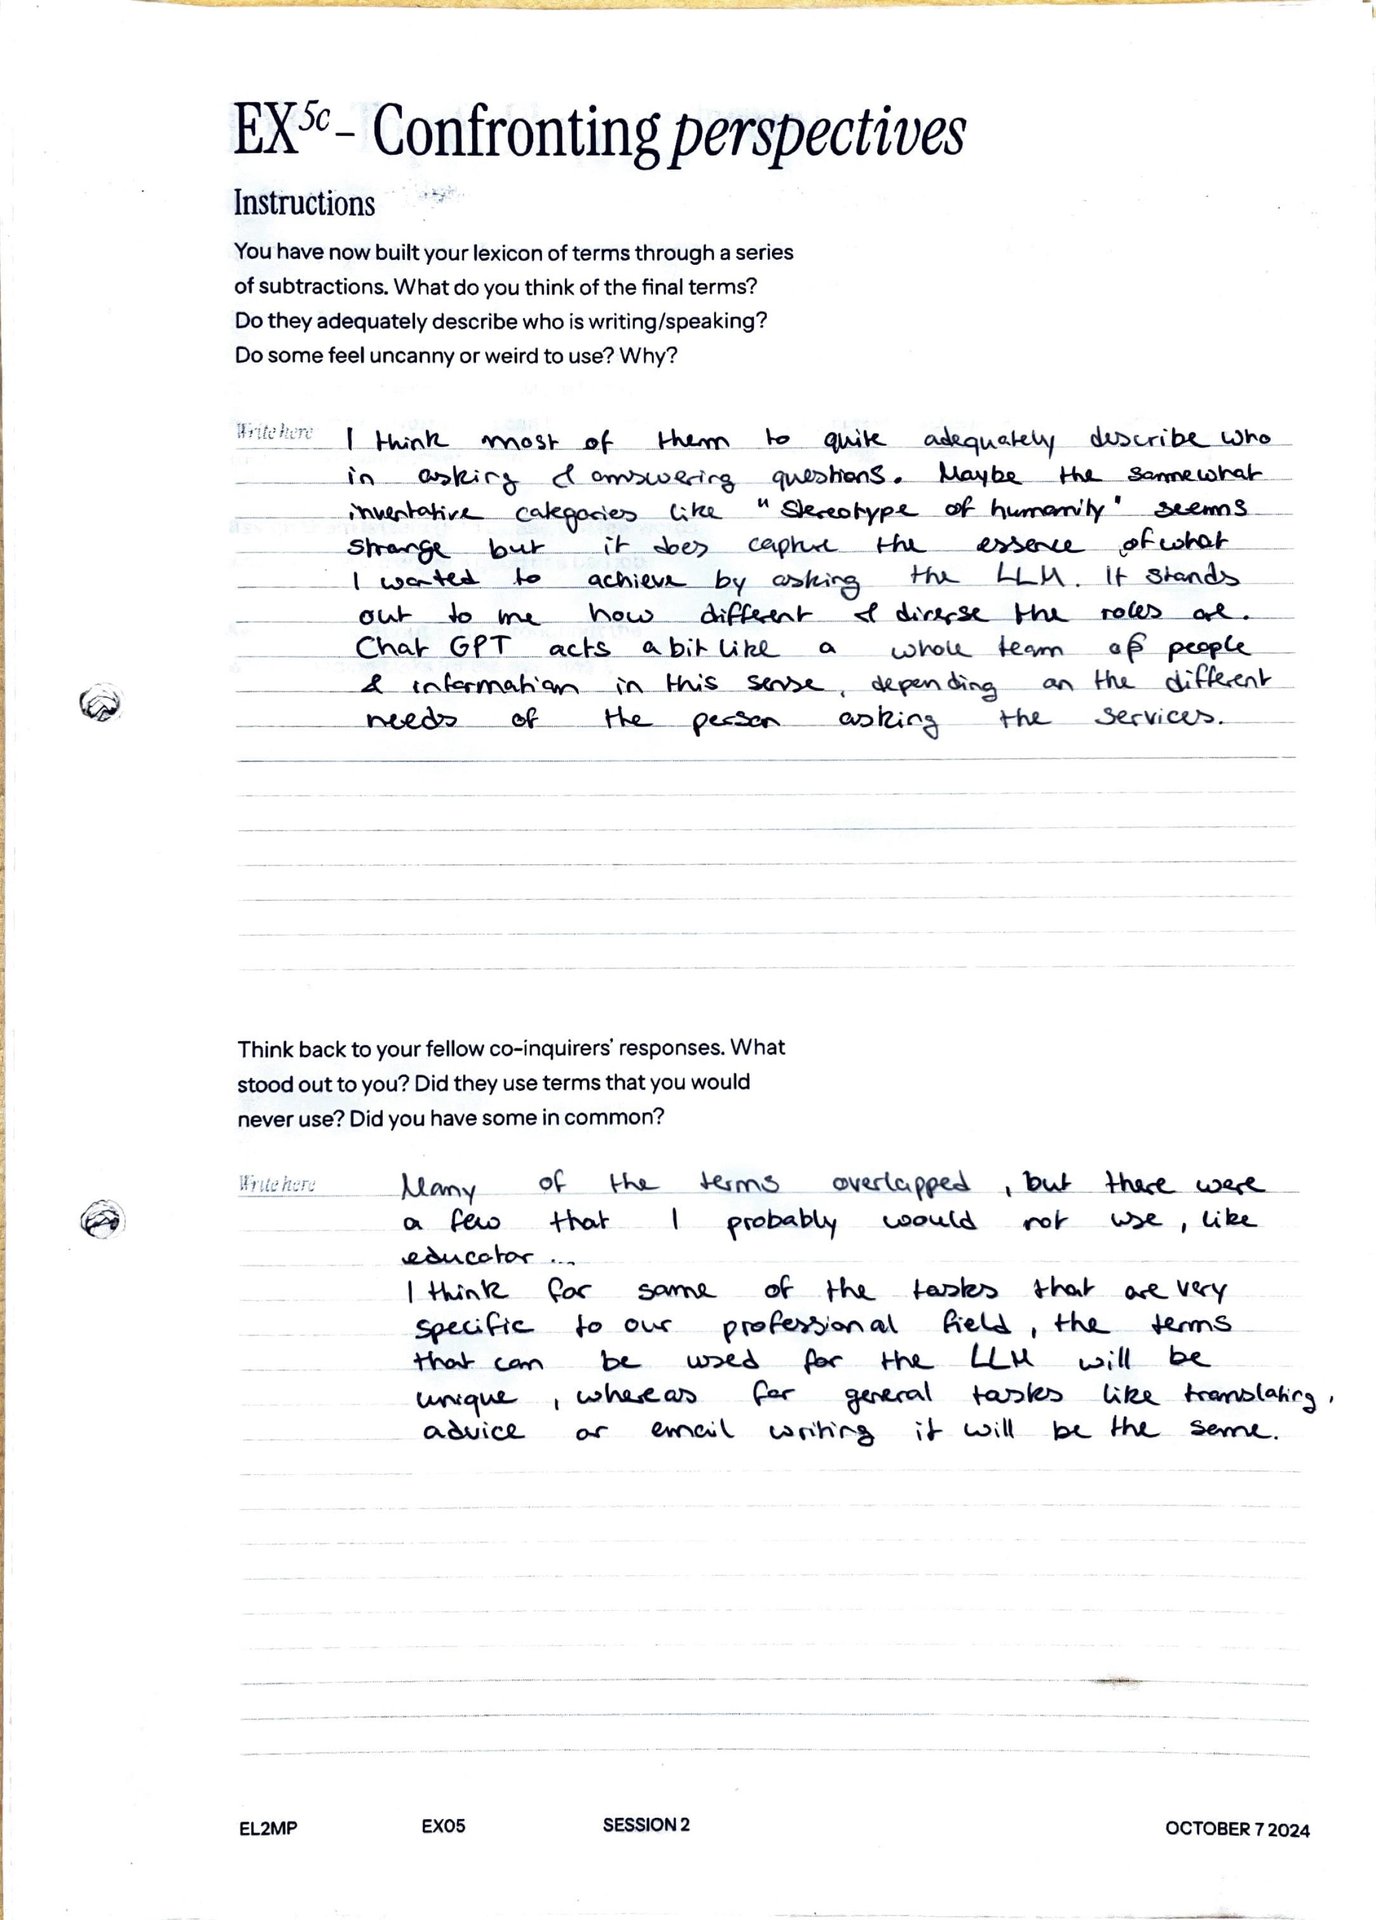 EX5c – Confronting perspectives
Instructions
You have now built your lexicon of terms through a series
of subtractions. What do you think of the final terms?
Do they adequately describe who is writing/speaking?
Do some feel uncanny or weird to use? Why?
Write here
I think most of them to quite adequately describe who
in asking & answering questions. Maybe the somewhat
inventative categories like "Stereotype of humanity" seems
strange but it does capture the essence of what
I wanted to achieve by asking the LLM. It stands
out to me how different & diverse the roles are.
Chat GPT acts a bit like a whole team of people
& information in this sense, depending on the different
needs of the person asking the services.
Think back to your fellow co-inquirers' responses. What
stood out to you? Did they use terms that you would
never use? Did you have some in common?
Write here
Many of the terms overlapped, but there were
a few that I probably would not use, like
educator ...
I think for some of the tasks that are very
specific to our professional field, the terms
that can be used for the LLM will be
unique, whereas for general tasks like translating,
advice or email writing it will be the same.
EL2MP EX05 SESSION 2 OCTOBER 7 2024